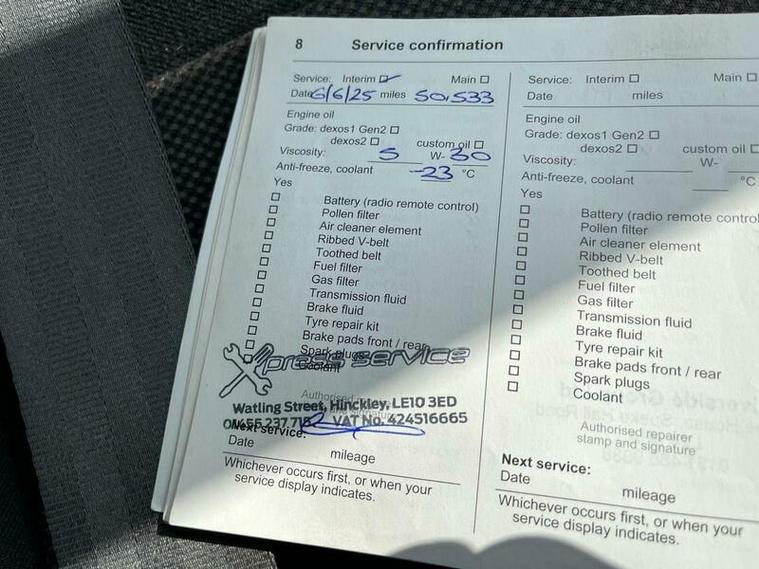 8 Service confirmation
Service: Interim Main
Date 6/6/25 miles 50,533
Engine oil
Grade: dexos1 Gen2
dexos2 custom oil
Viscosity: 5 W- 30
Anti-freeze, coolant -23 °C
Yes
Battery (radio remote control)
Pollen filter
Air cleaner element
Ribbed V-belt
Toothed belt
Fuel filter
Gas filter
Transmission fluid
Brake fluid
Tyre repair kit
Brake pads front / rear
Spark plugs
Coolant
Xpress service
Authorised
Watling Street, Hinckley, LE10 3ED
VAT No. 424516665
Next service:
Date mileage
Whichever occurs first, or when your
service display indicates.
Service: Interim Main
Date miles
Engine oil
Grade: dexos1 Gen2
dexos2 custom oil
Viscosity: W-
Anti-freeze, coolant °C
Yes
Battery (radio remote control
Pollen filter
Air cleaner element
Ribbed V-belt
Toothed belt
Fuel filter
Gas filter
Transmission fluid
Brake fluid
Tyre repair kit
Brake pads front / rear
Spark plugs
Coolant
Authorised repairer
stamp and signature
Next service:
Date mileage
Whichever occurs first, or when your
service display indicates.